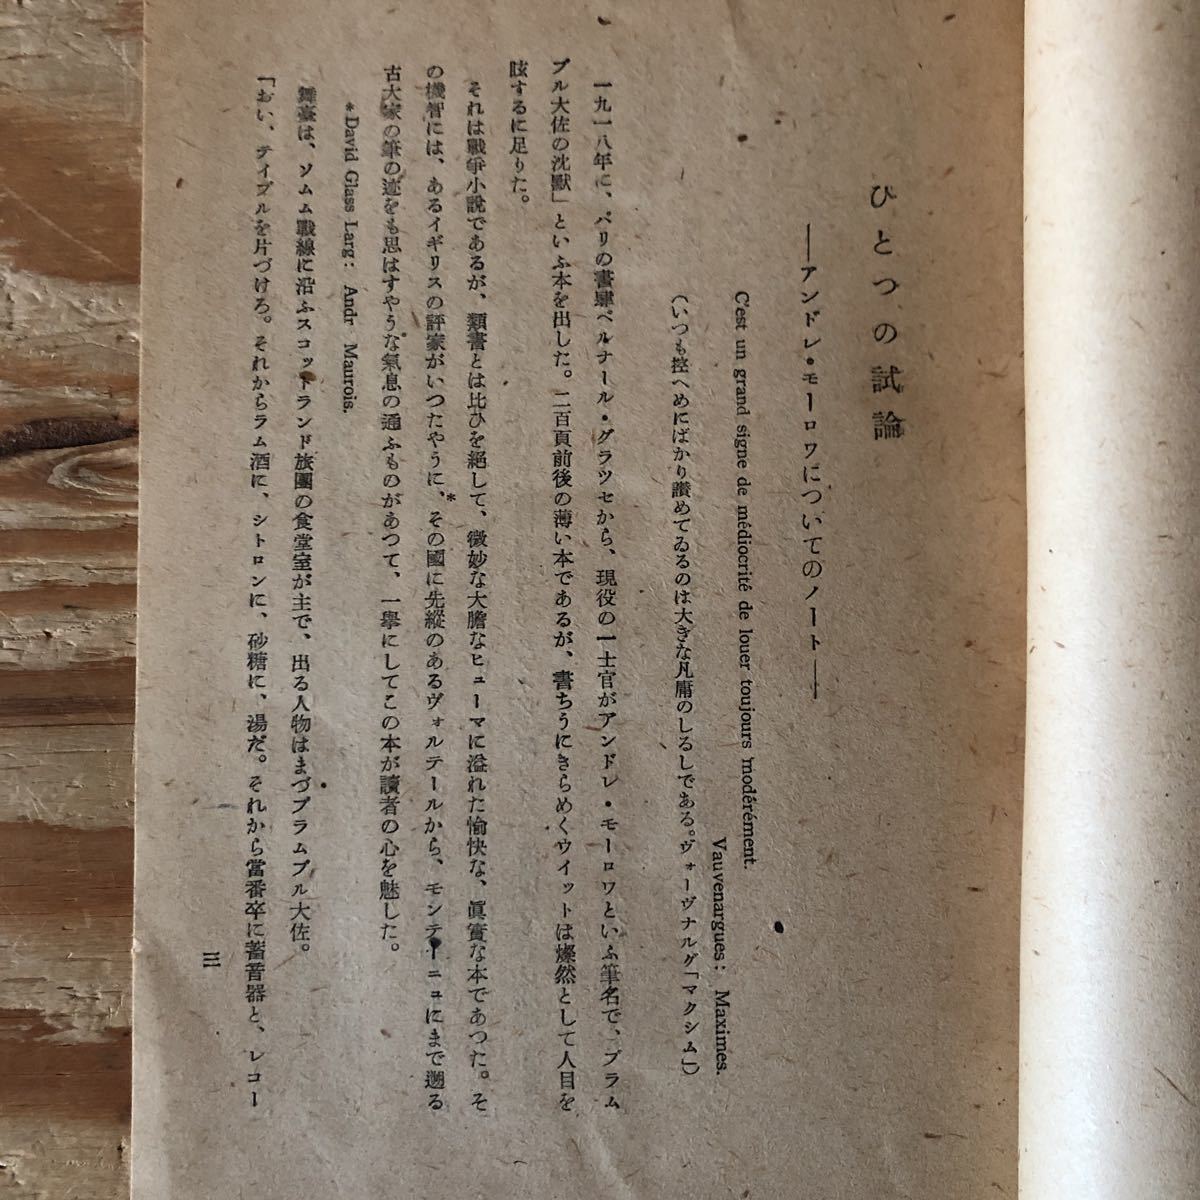 ひとつの試論
――アンドレ・モーロワについてのノート――
C'est un grand signe de médiocrité de louer toujours modérément.
Vauvenargues: Maximes.
(いつも控へめにばかり讃めてゐるのは大きな凡庸のしるしである。ヴォーヴナルグ「マクシム」)
一九一八年に、パリの書肆ベルナール・グラツセから、現役の一士官がアンドレ・モーロワといふ筆名で、ブラム
ブル大佐の沈默」といふ本を出した。二百頁前後の薄い本であるが、書ちうにきらめくウイットは燦然として人目を
眩するに足りた。
それは戰爭小説であるが、類書とは比ひを絶して、微妙な大膽なヒューマに溢れた愉快な、眞實な本であつた。そ
の機智には、あるイギリスの評家がいつたやうに、*その國に先蹤のあるヴォルテールから、モンテーニュにまで遡る
古大家の筆の迹をも思はすやうな氣息の通ふものがあつて、一擧にしてこの本が讀者の心を魅した。
*David Glass Larg: Andr Maurois.
舞臺は、ソムム戰線に沿ふスコットランド旅團の食堂室が主で、出る人物はまづブラムブル大佐。
「おい、テイブルを片づけろ。それからラム酒に、シトロンに、砂糖に、湯だ。それから當番卒に蓄音器と、レコー
三